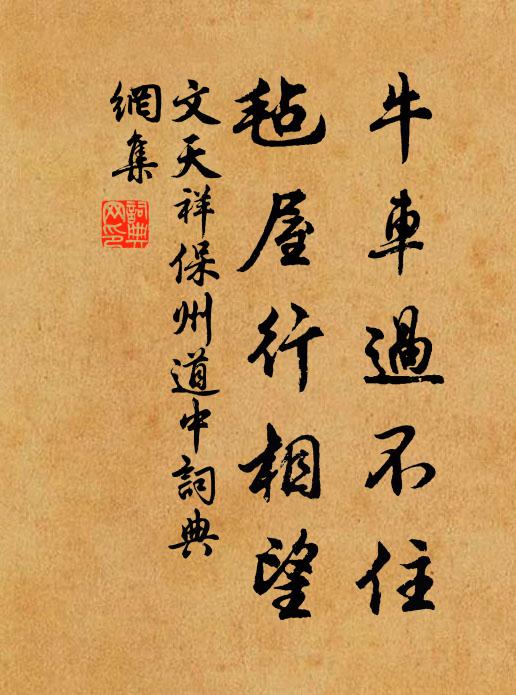 牛車過不住
氊屋行相望
文天祥保州道中詞典
網集
詞典
网印